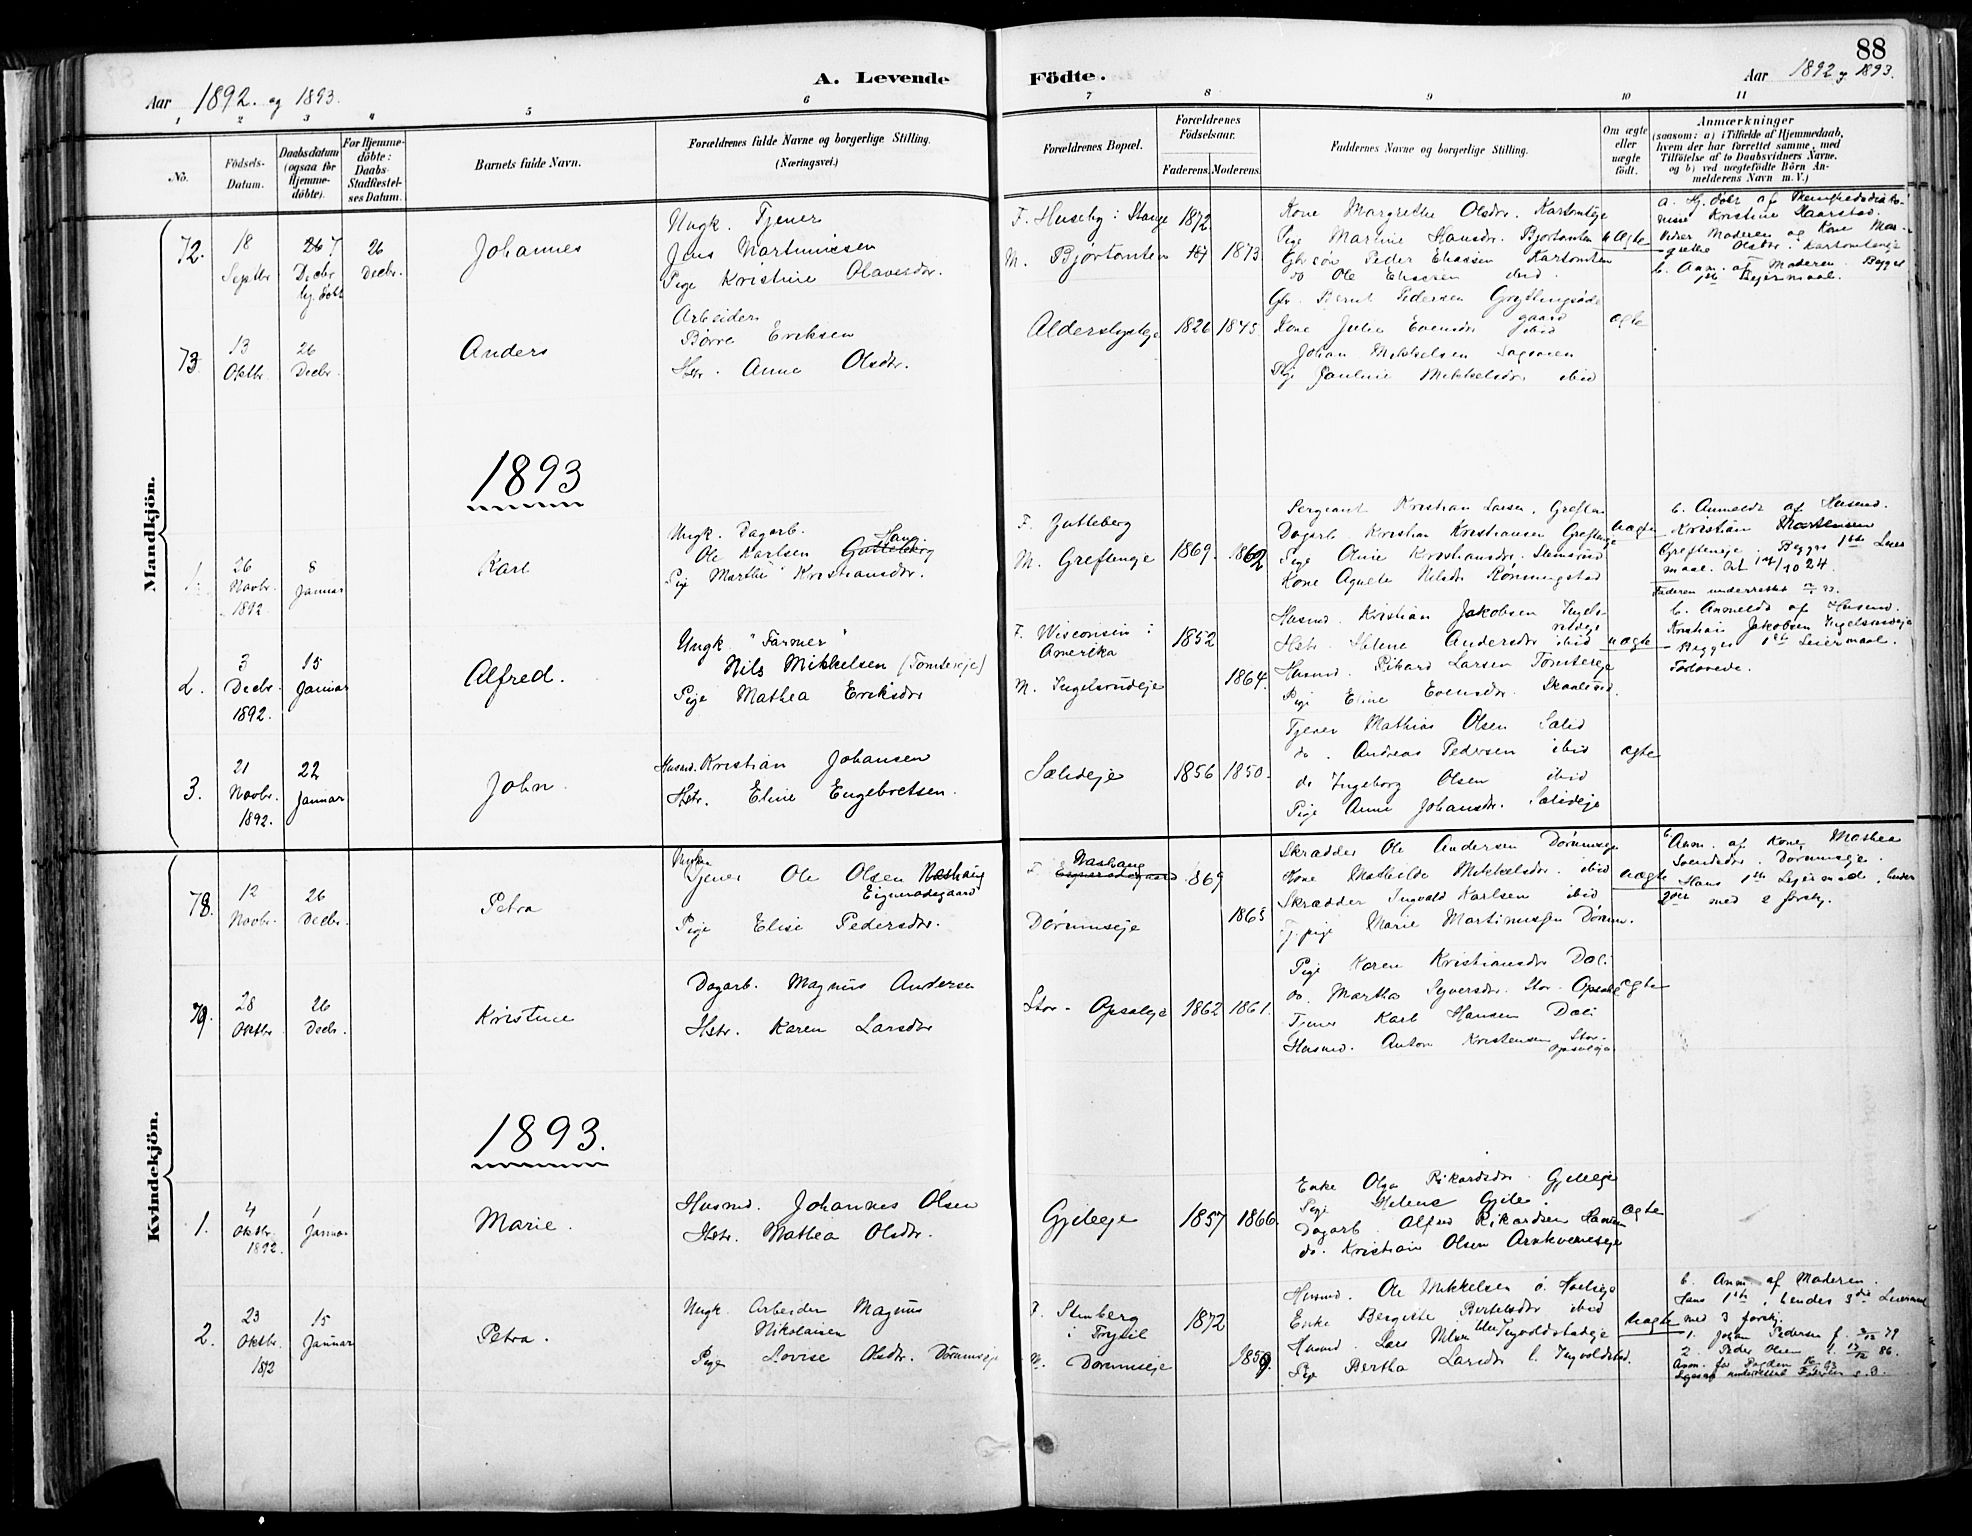 88
A. Levende Födte.
Aar 1892 og 1893.
Aar 1892 og 1893.
1 2 3 4 5 6 7 8 9 10 11
No.
Födsels-Datum.
Daabsdatum (ogsaa for Hjemme-döbte).
For Hjemme-döbte: Daabs-Stadfæstel-ses Datum.
Barnets fulde Navn.
Forældrenes fulde Navne og borgerlige Stilling. (Næringsvei.)
Forældrenes Bopæl.
Forældrenes Födselsaar.
Faderens. Moderens.
Faddernes Navne og borgerlige Stilling.
Om ægte eller uægte födt.
Anmærkninger
(saasom: a) i Tilfælde af Hjemmedaab,
hvem der har forrettet samme, med
Tilföielse af to Daabsvidners Navne,
og b) ved uægtefödte Börn An-
melderens Navn m. V.)
Mandkjön.
72. 18 Septbr 26 Decbr. Johannes
Ungk. Tjener
Jens Martinusen
Pige Kristine Olavesdr.
F. Huseby i Stange 1872
M. Bjørtomten 1873
Kone Margrethe Olsdr.
Pige Martine Hansdr. Bjørtomten
Peder Eliassen
do Ole Eliassen ibid.
uægte
Kristine Skaarstad.
Vidner Moderen og Kone Mar-
grethe Olsdr.
b. Anm. af Moderen. Begges
1ste Leiermaal.
73. 13 Oktbr. 26 Decbr. Anders
Arbeider
Børre Eriksen
Hstr. Anne Olsdtr.
Alderslysteje 1826 1845
Bernt Pedersen
Kone Julie Evensdr ibid
Johan Mikkelsen
Pige Pauline Mikkelsdr ibid
ægte
1893
1. 26 Novbr. 1892. 8 Januar Karl
Ungk. Dagarb. Haug
Ole Karlsen
Pige Marthe Kristiansdr.
F. Gutteberg
M. Grefteneje 1869. 1862
Sergeant Kristian Larsen
Dagarb Kristian Kristiansen
Pige Oline Kristiansdr.
Kone Agnete Nilsdr Rønningstad
uægte
b. Anmeldt af Husmd.
Kristian Martensen
Grefteneje. Begges 1ste Leier
maal.
Faderen underrettet
2. 3 Decbr. 1892. 15 Januar Alfred.
Ungk "Farmer"
Nils Mikkelsen (Tomtereje)
Pige Mathea Eriksdr
F. Wisconsin i Amerika 1852
M. Ingelsrudeje 1864.
Husmd. Kristian Jakobsen Ingels-rudeje
Hstr. Helene Andersdr ibid
Husmd. Rikard Larsen Tomtereje
Pige Eline Evensdr.
uægte
b. Anmeldt af Husmd.
Kristian Jakobsen Ingelsrudeje
Begges 1ste Leiermaal.
Forlovede.
3. 21 Novbr. 1892. 22 Januar John.
Husmd. Kristian Johansen
Hstr. Eline Engebretsen.
Sælideje 1856 1850.
Tjener Mathias Olsen Sælid
do. Andreas Pedersen ibid
do Ingeborg Olsen ibid
Pige Anne Johansdr. Sælideje
ægte
Kvindekjön.
78. 12 Novbr. 26 Decbr. Petra
Tjener Ole Olsen
Pige Elise Pedersdr.
Næshaug 1869
Dørumseje 1865
Skrædder Ole Andersen Dørumseje
Kone Mathilde Mikkelsdr. ibid
Skrædder Ingvald Karlsen ibid
Tj. pige Marie Martinusen Dørum.
uægte
Anm. af Kone Mathea
Svendsdr. Dørumseje.
Hans 1ste Leiermaal, hendes
2det med 2 forskj.
79. 28 Oktbr. 26 Decbr. Kristine
Dagarb. Magnus Andersen
Hstr. Karen Larsdr
Stor-Opsaleje 1862 1861.
Pige Karen Kristiansdr Dæli
do. Martha Syversdr. Stor-Opsal
Tjener Karl Hansen Dæli
Husmd. Anton Kristensen Stor-Opsaleje
ægte
1893.
1. 4 Oktbr. 1892. 1 Januar Marie.
Husmd. Johannes Olsen
Hstr. Mathea Olsdr.
Gjileeje 1857 1866.
Enke Olga Rikardsdr. Gjileeje
Pige Helene Gjile.
Dagarb. Alfred Rikardsen
do. Kristian Olsen Arnkverneje
ægte
2. 23 Oktbr. 1892 15 Januar Petra.
Ungk. Arbeider Magnus
Nikolaisen
Pige Lovise Olsdr. Dørumseje
F. Stenberg i Trysil 1872
M. Dørumseje 1859.
Husmd. Ole Mikkelsen
Enke Bergitte Bertelsdr ibid
Husmd. Lars Nilsen lille Ingvoldstadeje
Pige Bertha Larsdr l. Ingvoldstad.
uægte
b. Anm. af Moderen.
Hans 1ste, hendes 3die Leiermaal
med 3 forskj.
1. Johan Pedersen f. 79
2. Peder Olsen f. 86.